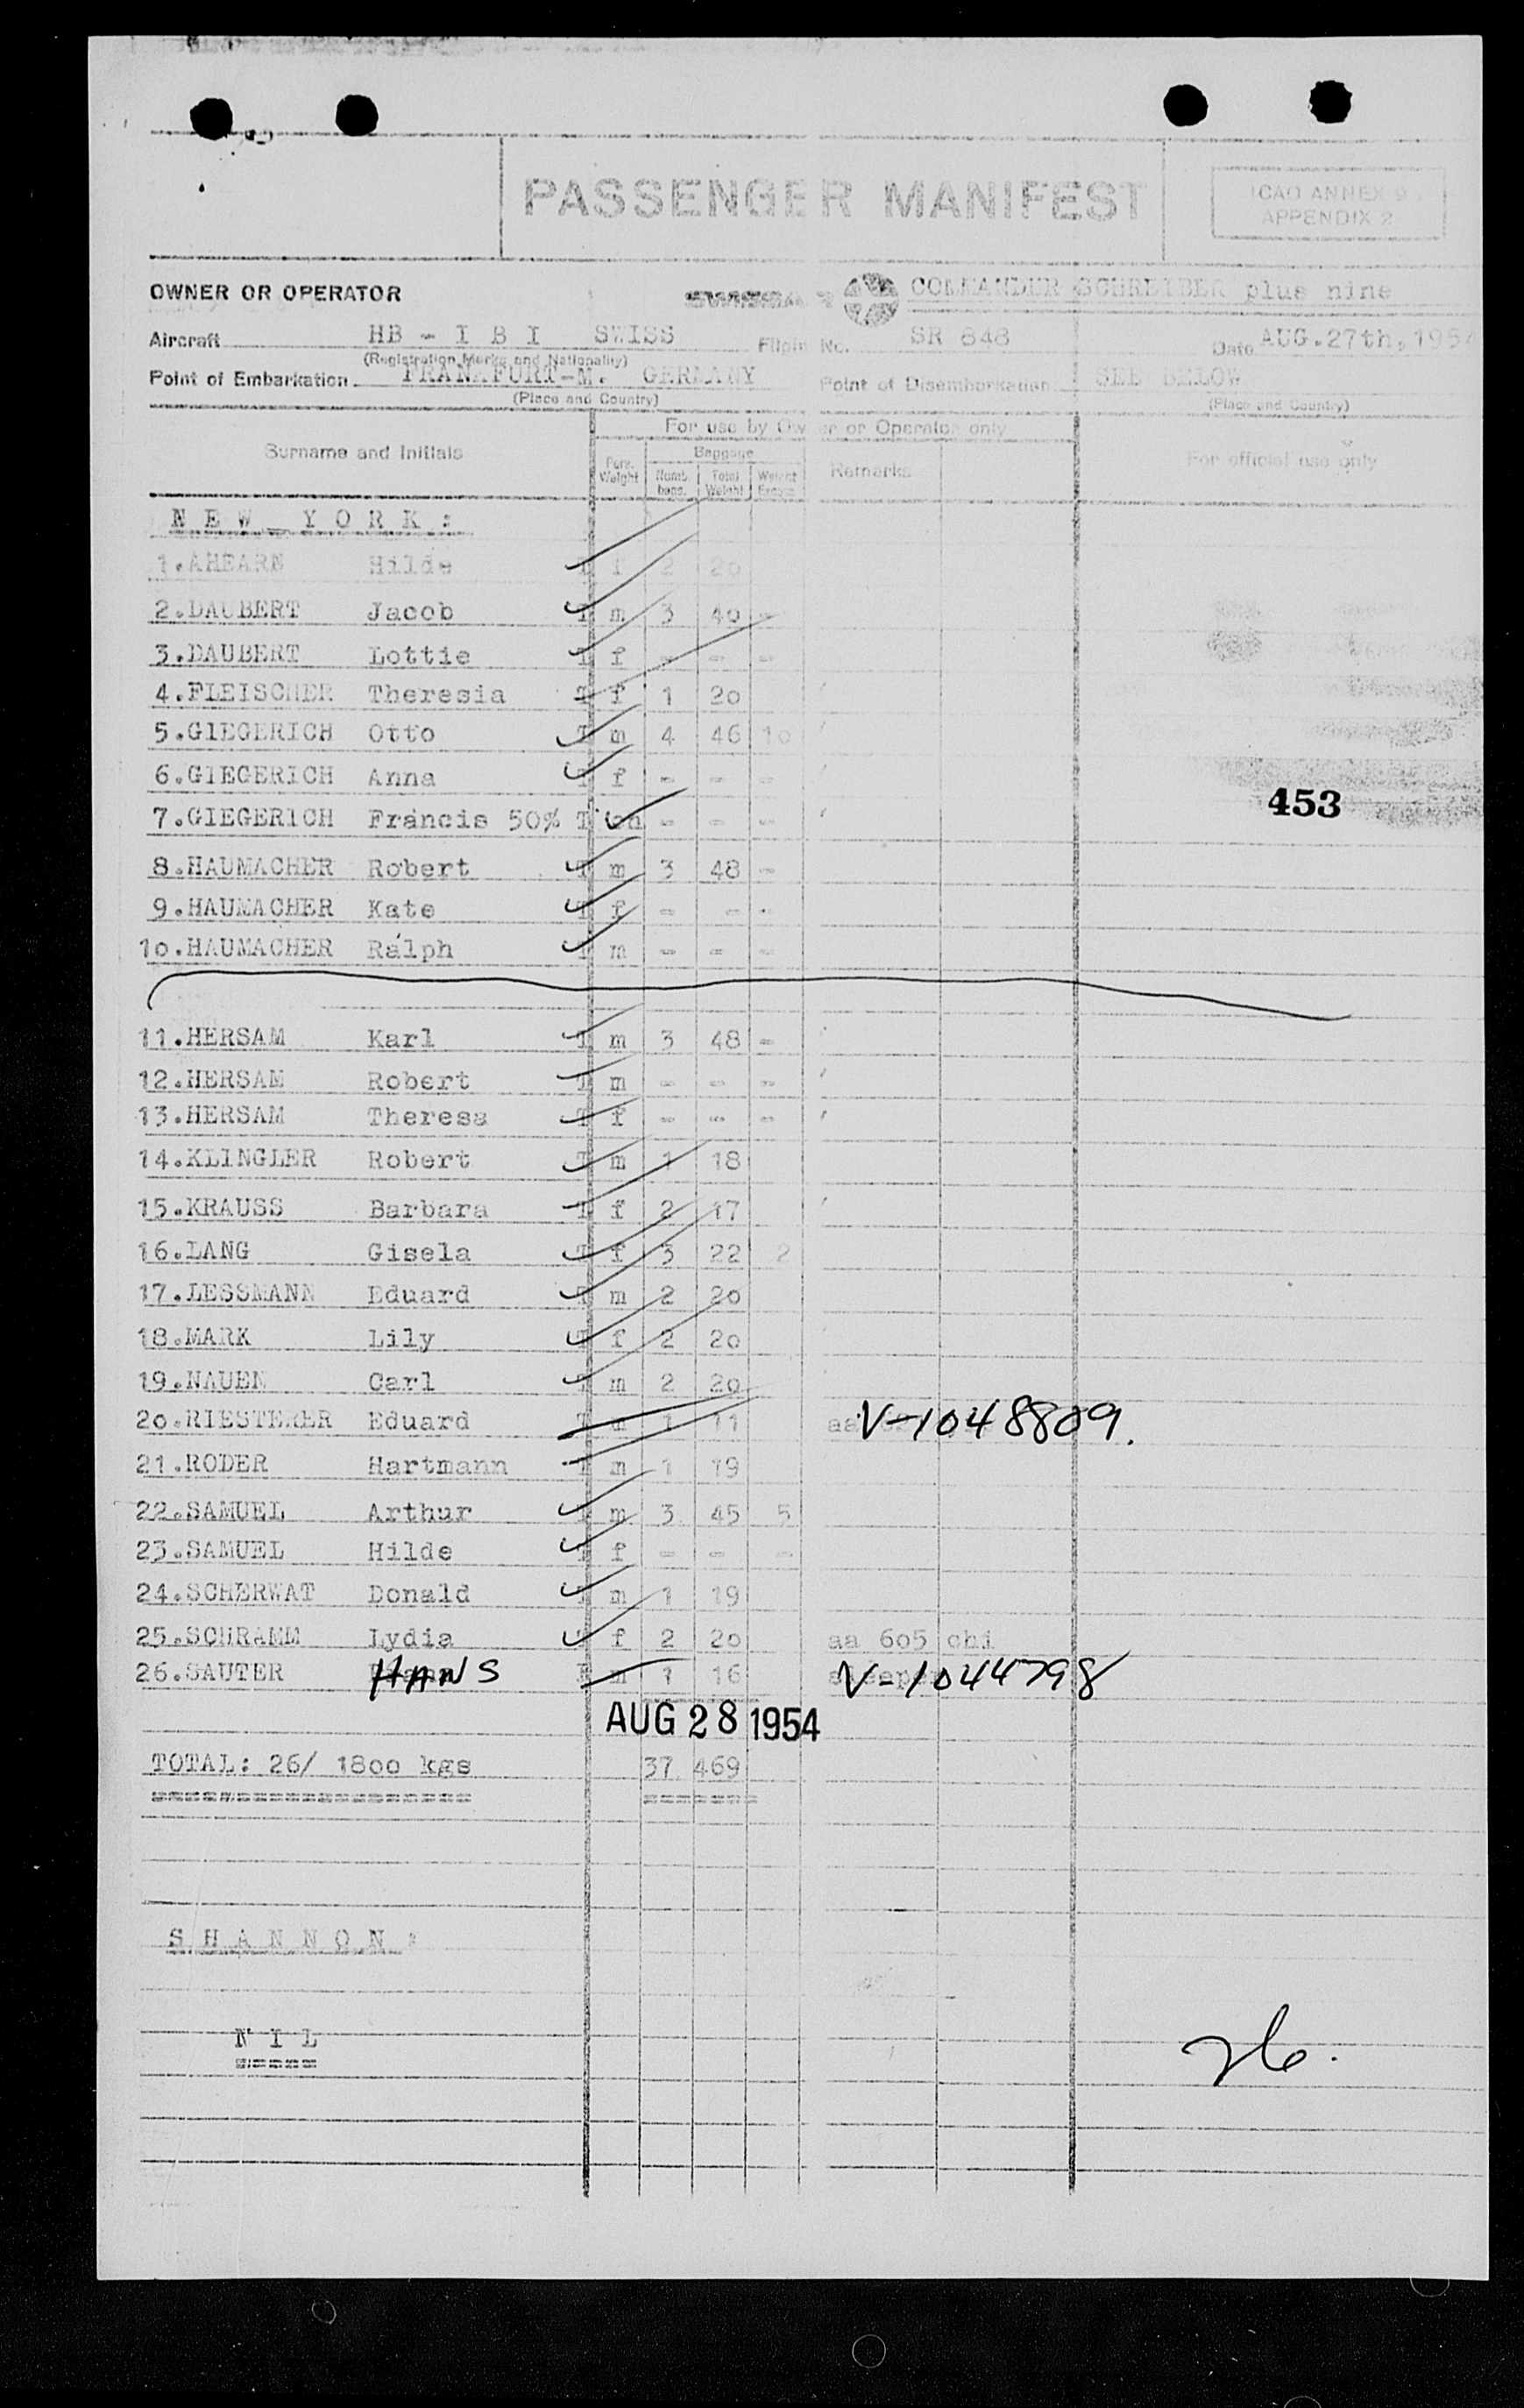 PASSENGER MANIFEST
ICAO ANNEX 9
APPENDIX 2
OWNER OR OPERATOR SWISSAIR COMMANDER SCHREIBER plus nine
Aircraft HB - I B I SWISS Flight No. SR 848 Date AUG.27th, 1954
(Registration Marks and Nationality)
Point of Embarkation FRANKFURT-M. GERMANY Point of Disembarkation SEE BELOW
(Place and Country) (Place and Country)
For use by Owner or Operator only
Surname and Initials Pers. Weight Baggage Remarks For official use only
Numb. bags. Total Weight Weight Excess
N E W Y O R K :
1.AHEARN Hilde T f 2 20
2.DAUBERT Jacob T m 3 40 -
3.DAUBERT Lottie T f - - -
4.FLEISCHER Theresia T f 1 20
5.GIEGERICH Otto T m 4 46 10
6.GIEGERICH Anna T f - - -
7.GIEGERICH Francis 50% T ch - - -
453
8.HAUMACHER Robert T m 3 48 -
9.HAUMACHER Kate T f - - -
10.HAUMACHER Ralph T m - - -
11.HERSAM Karl T m 3 48 -
12.HERSAM Robert T m - - -
13.HERSAM Theresa T f - - -
14.KLINGLER Robert T m 1 18
15.KRAUSS Barbara T f 2 17
16.LANG Gisela T f 3 22 2
17.LESSMANN Eduard T m 2 20
18.MARK Lily T f 2 20
19.NAUEN Carl T m 2 20
20.RIESTERER Eduard T m 1 11 aa V-1048809.
21.RODER Hartmann T m 1 19
22.SAMUEL Arthur T m 3 45 5
23.SAMUEL Hilde T f - - -
24.SCHERWAT Donald T m 1 19
25.SCHRAMM Lydia T f 2 20 aa 605 chi
26.SAUTER HANS m 1 16 V-1044798
AUG 28 1954
TOTAL: 26/ 1800 kgs 37 469
S H A N N O N :
N I L
26.